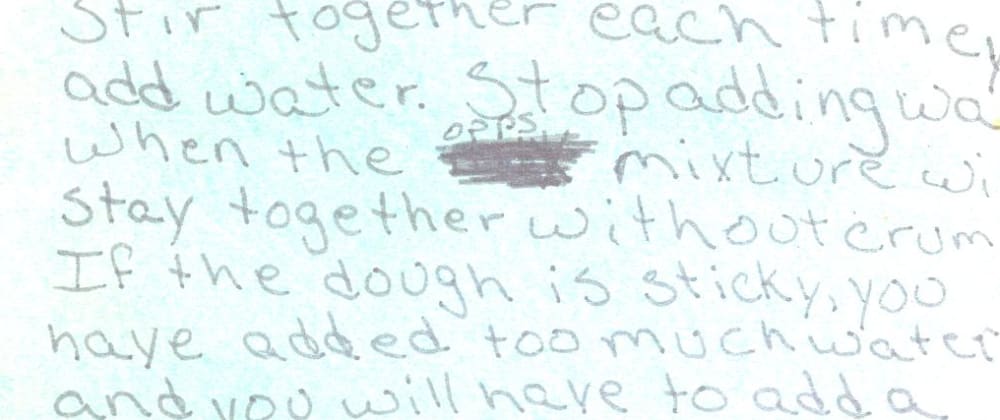 Stir together each time y
add water. Stop adding wa
opps
when the mixture wi
stay together without crum
If the dough is sticky, you
have added too much water
and you will have to add a